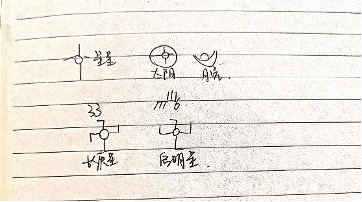 星星 太阳 月亮.
33
长庚星 启明星.